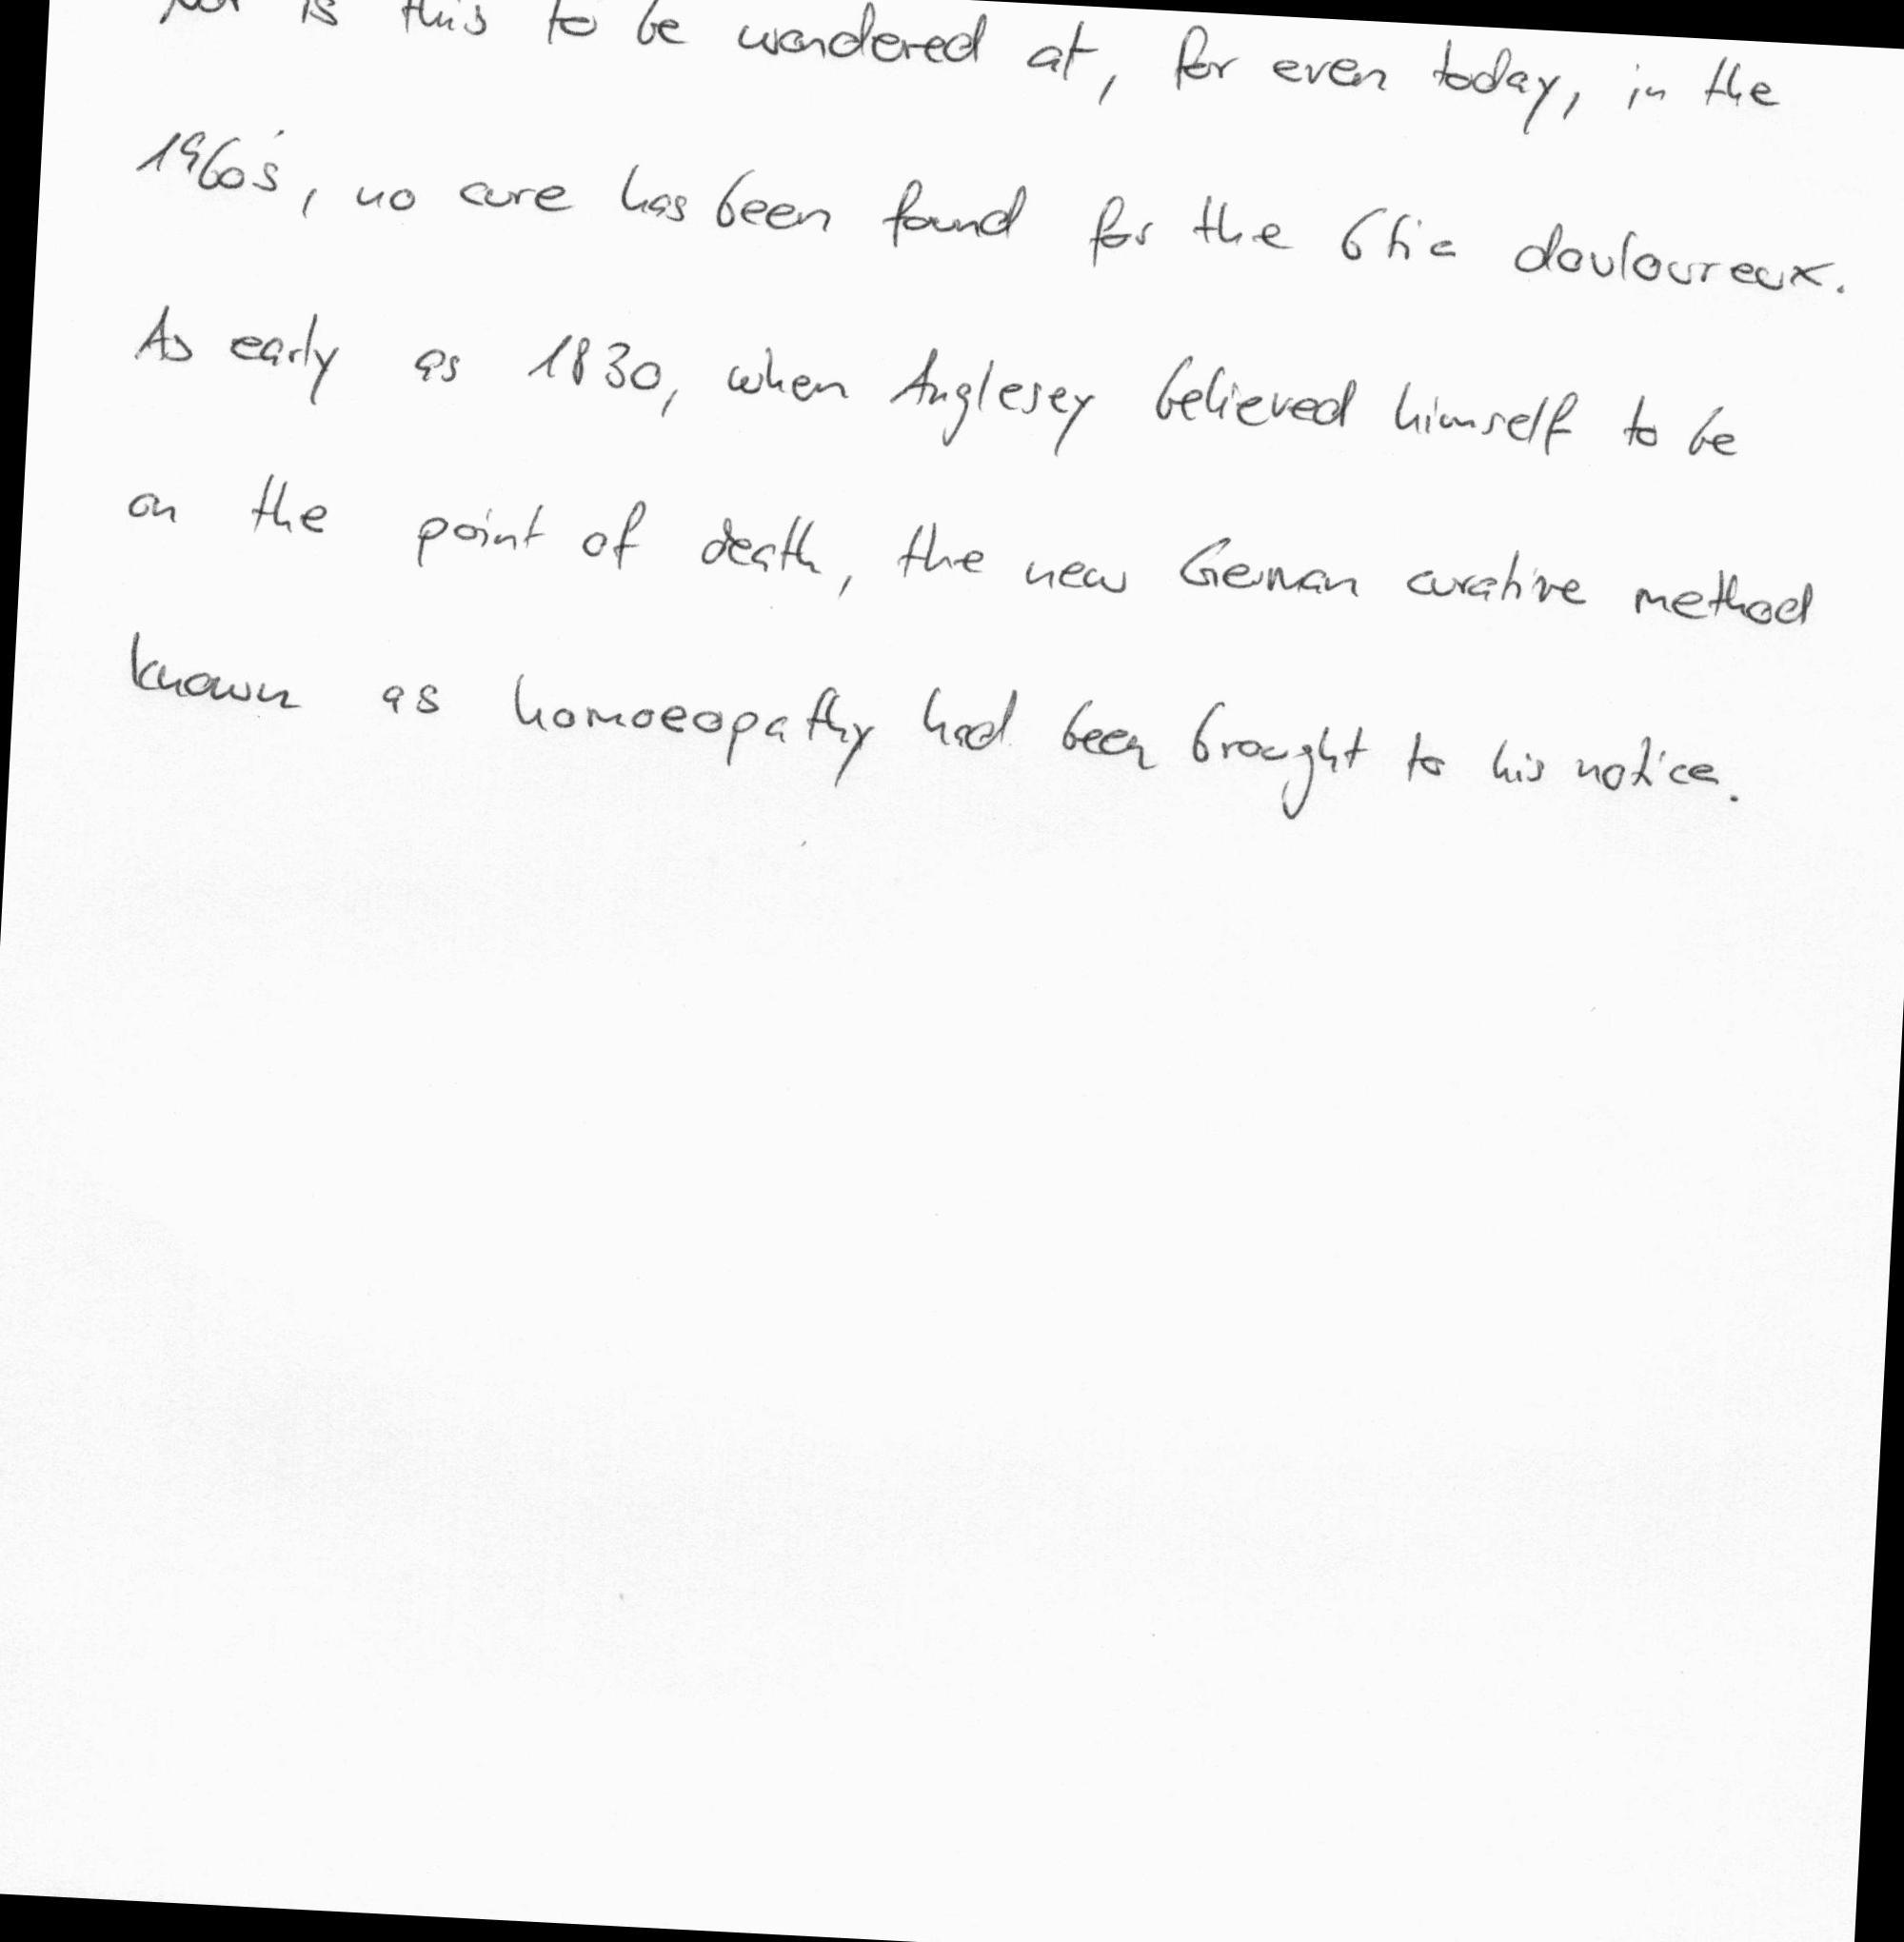 Nor is this to be wondered at, for even today, in the
1960's, no cure has been found for the 6tic douloureux.
As early as 1830, when Anglesey believed himself to be
on the point of death, the new German curative method
known as homoeopathy had been brought to his notice.